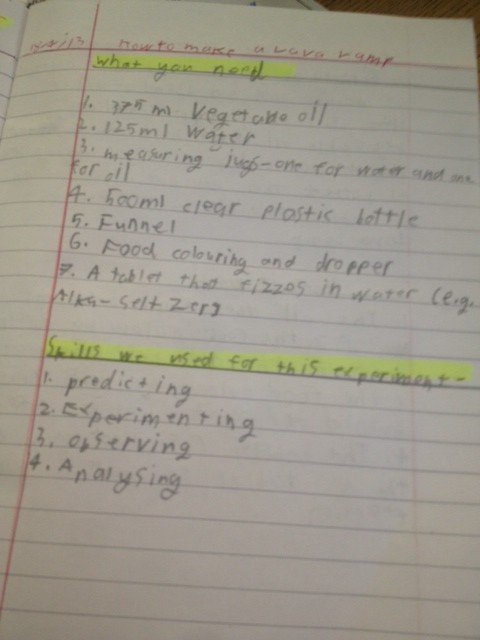 How to make a lava lamp
What you need
1. 375 ml Vegetable oil
2. 125ml Water
3. measuring jugs-one for water and one
for oil
4. 500ml clear plastic bottle
5. Funnel
6. Food colouring and dropper
7. A tablet that fizzos in water (e.g.
Alka-Selt Zerg
Skills we used for this experiment-
1. predicting
2. Experimenting
3. observing
4. Analysing